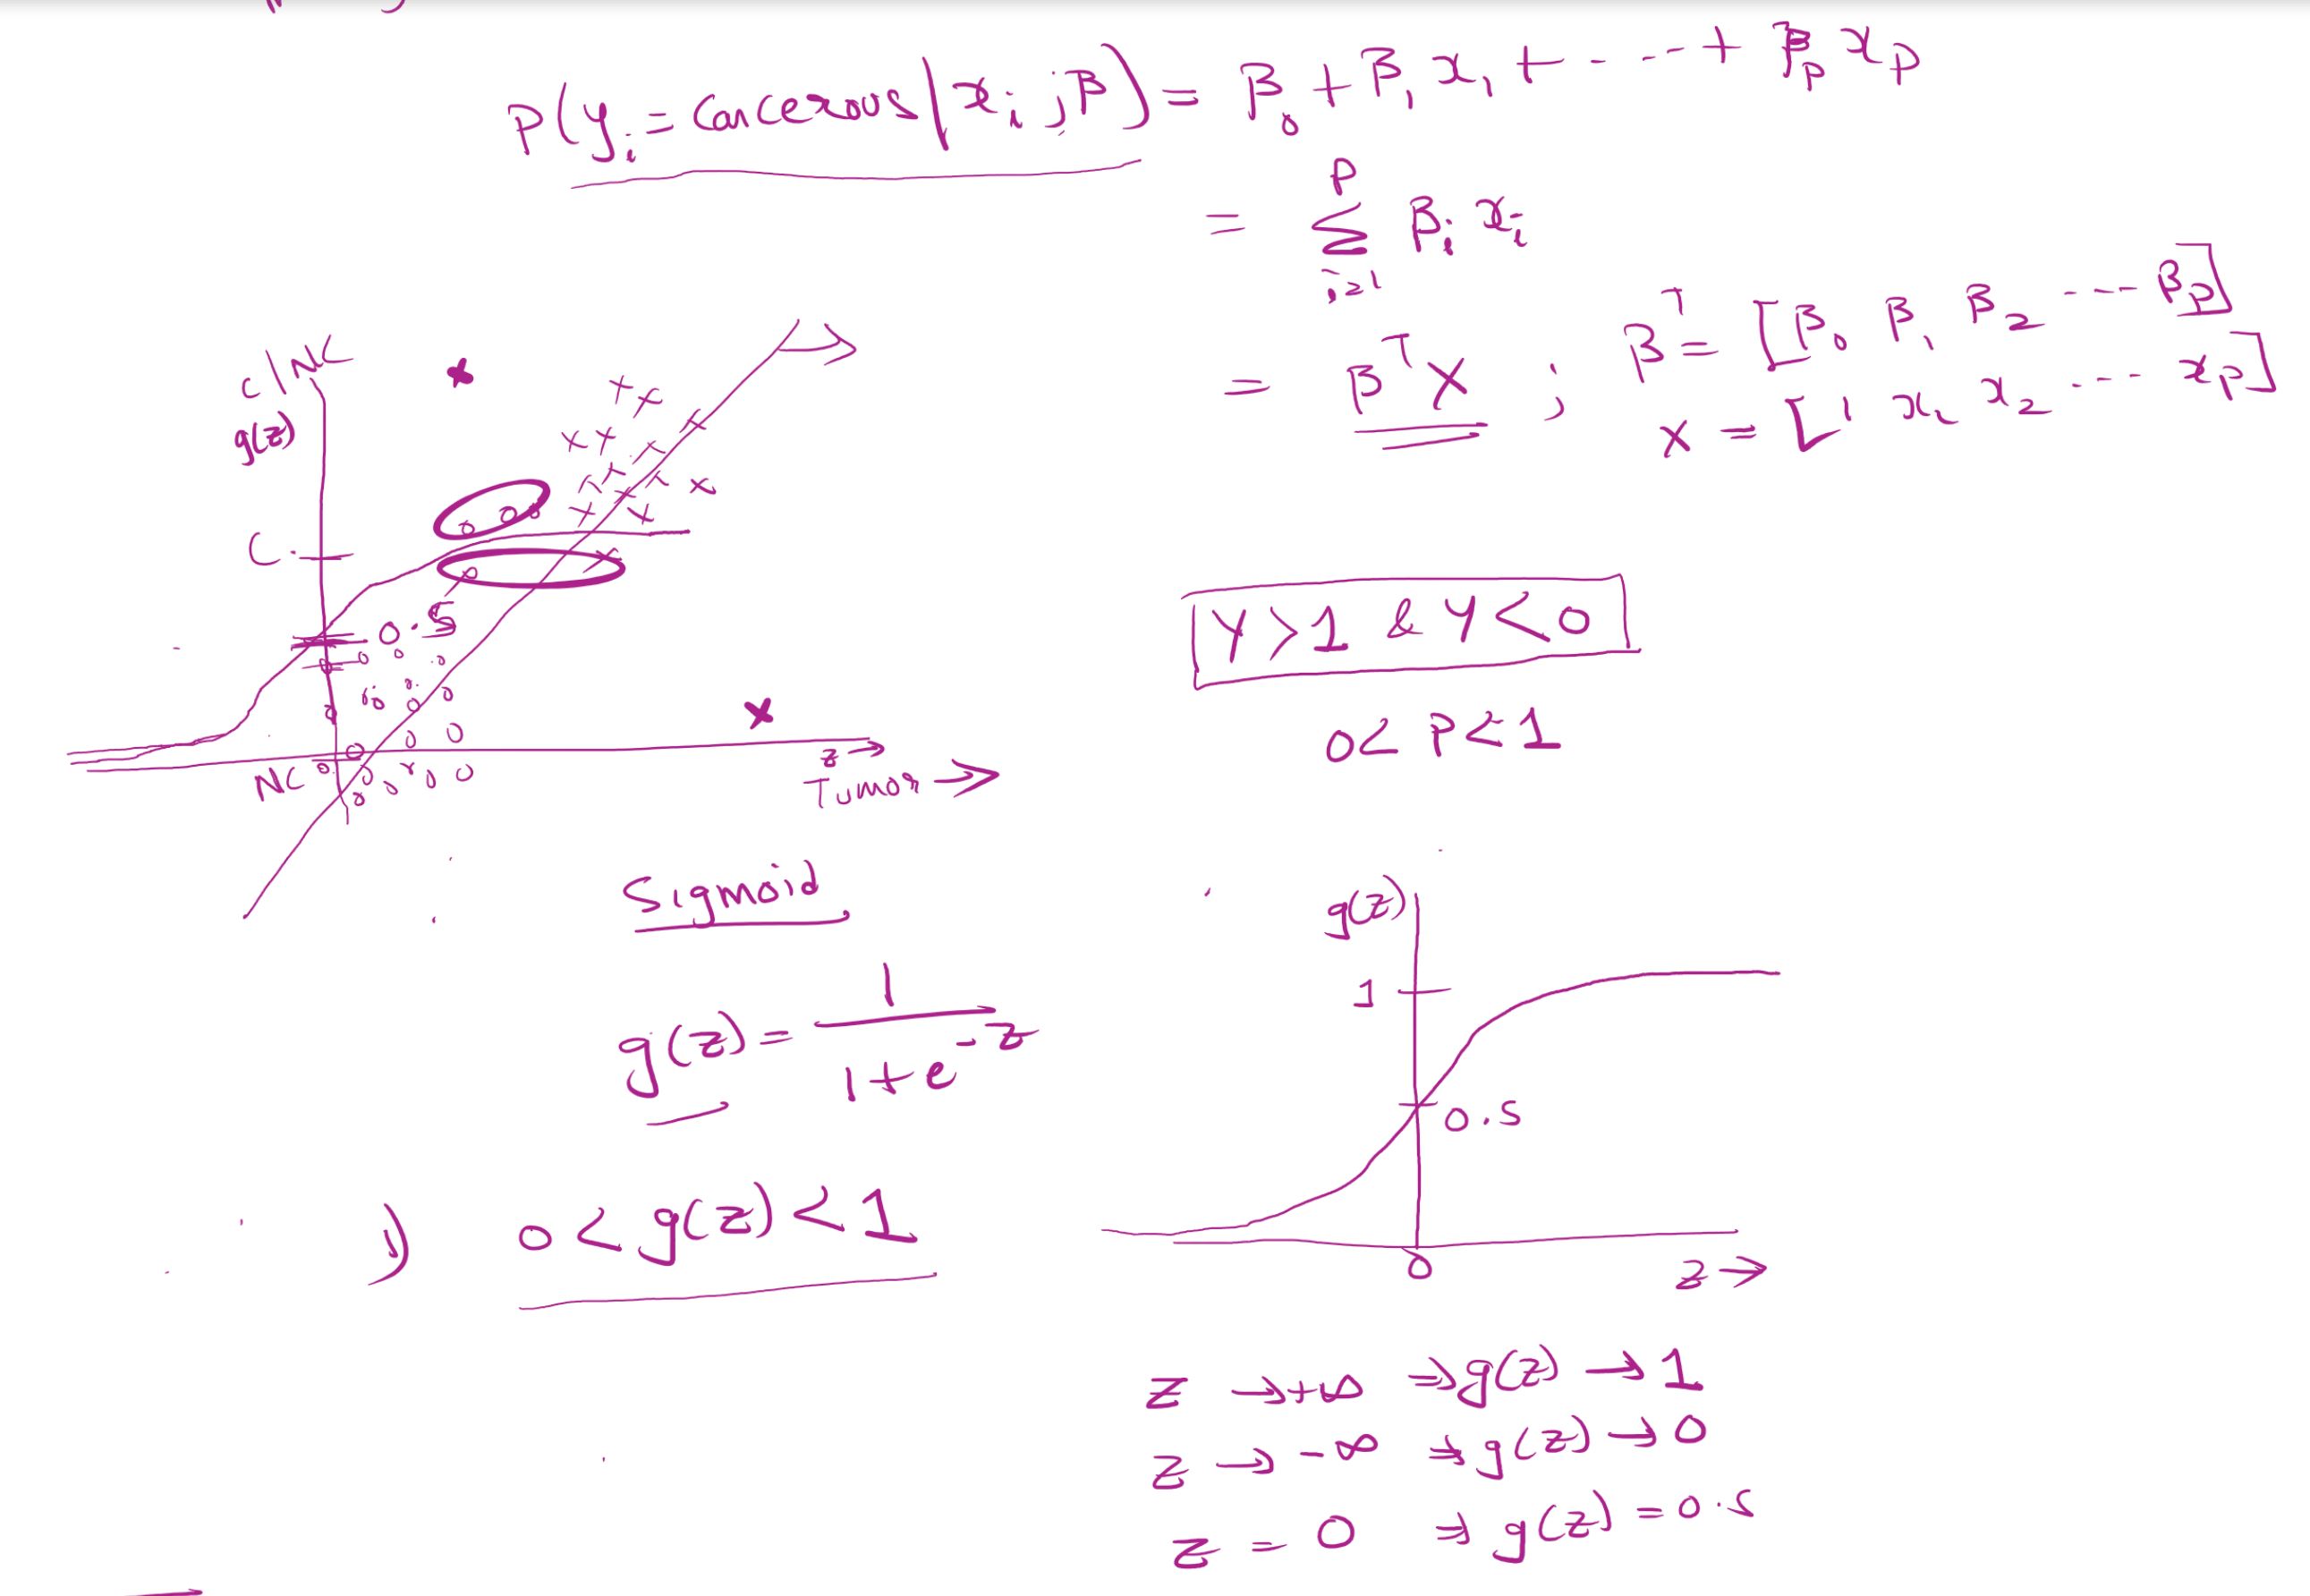 P(y_i = Cancerous | x_i ; β) = β_0 + β_1 x_1 + ---- + β_p x_p
= Σ_{i=1}^{p} β_i x_i
= β^T X ; β^T = [β_0 β_1 β_2 ---- β_p]
X = [1 x_1 x_2 ---- x_p]
C/NC
g(z)
C
0.5
NC
z →
Tumor →
Y > 1 & Y < 0
0 < P < 1
Sigmoid
g(z) = 1 / (1 + e^{-z})
g(z)
1
0.5
0
z →
1) 0 < g(z) < 1
z → +∞ ⇒ g(z) → 1
z → -∞ ⇒ g(z) → 0
z = 0 ⇒ g(z) = 0.5